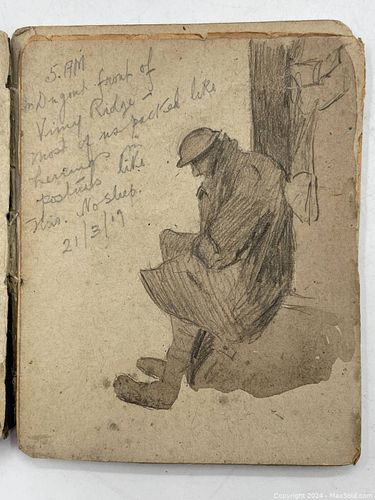 5. AM
in Dugout front of
Vimy Ridge -
most of us packed like
herring
postures like
this. No sleep.
21/3/17
Copyright 2024 - MaxSold.com